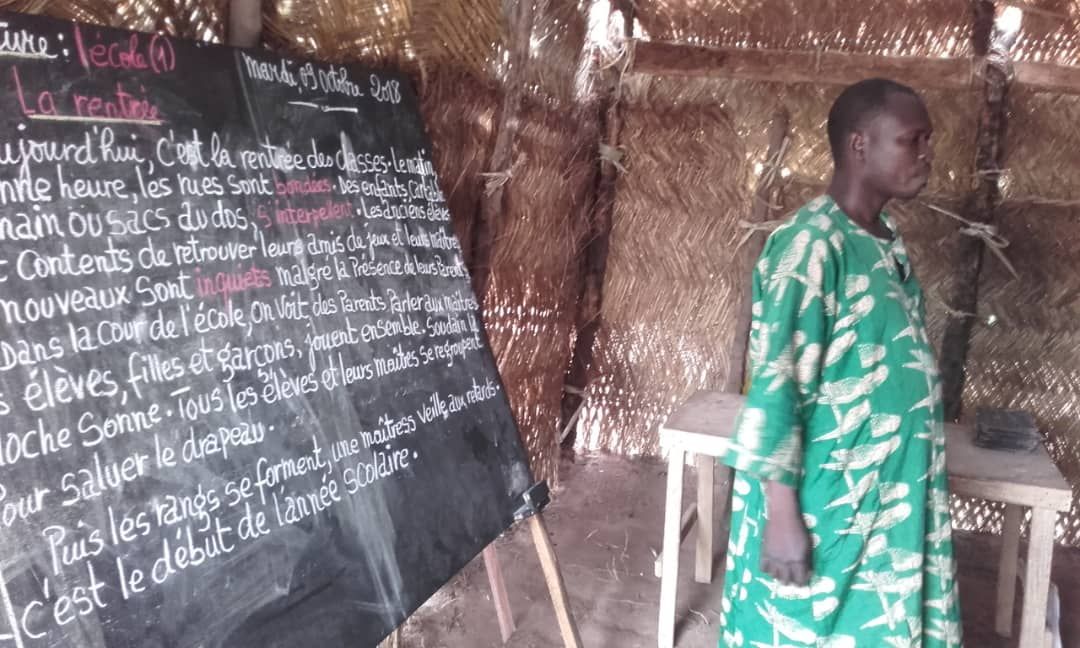 ture : l'école (1)
Mardi, 09 Octobre 2018
La rentrée
ujourd'hui, C'est la rentrée des classes. Le matin,
nne heure, les rues sont bondées. Des enfants, Cartable
main ou sacs au dos, s'interpellent. Les anciens élèves
t Contents de retrouver leurs amis de jeux et leurs maîtres
nouveaux Sont inquiets malgré la Présence de leurs Parents
Dans la cour de l'école, on Voit des Parents Parler aux maîtres
s élèves, filles et garçons, jouent ensemble. Soudain la
loche Sonne. Tous les élèves et leurs maîtres se regroupent
Pour saluer le drapeau.
Puis les rangs se forment, une maîtresse veille aux retards.
C'est le début de l'année scolaire.